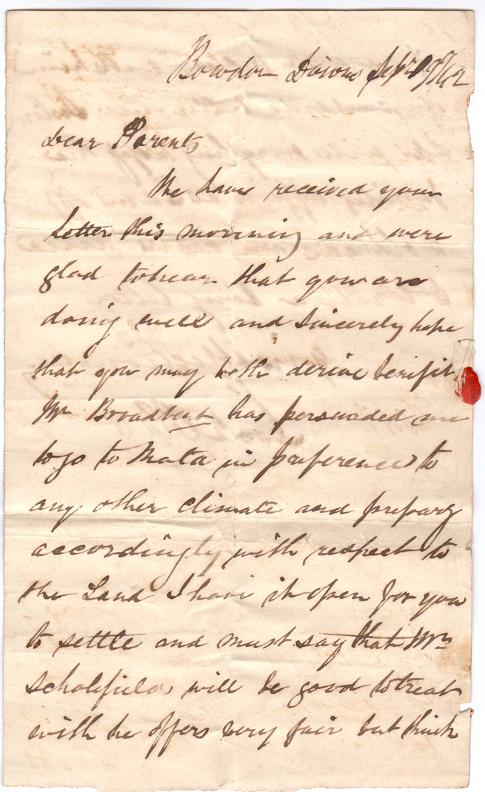 Bowdon Downs Sepr 1842
Dear Parents
We have received your
Letter this morning and were
glad to hear that you are
doing well and Sincerely hope
that you may both derive benifit
Mr Broadbent has persuaded me
to go to Malta in preference to
any other climate and prepare
accordingly with respect to
the Land I have it open for you
to settle and must say that Mr
Scholefield will be good to treat
with he offers very fair but think